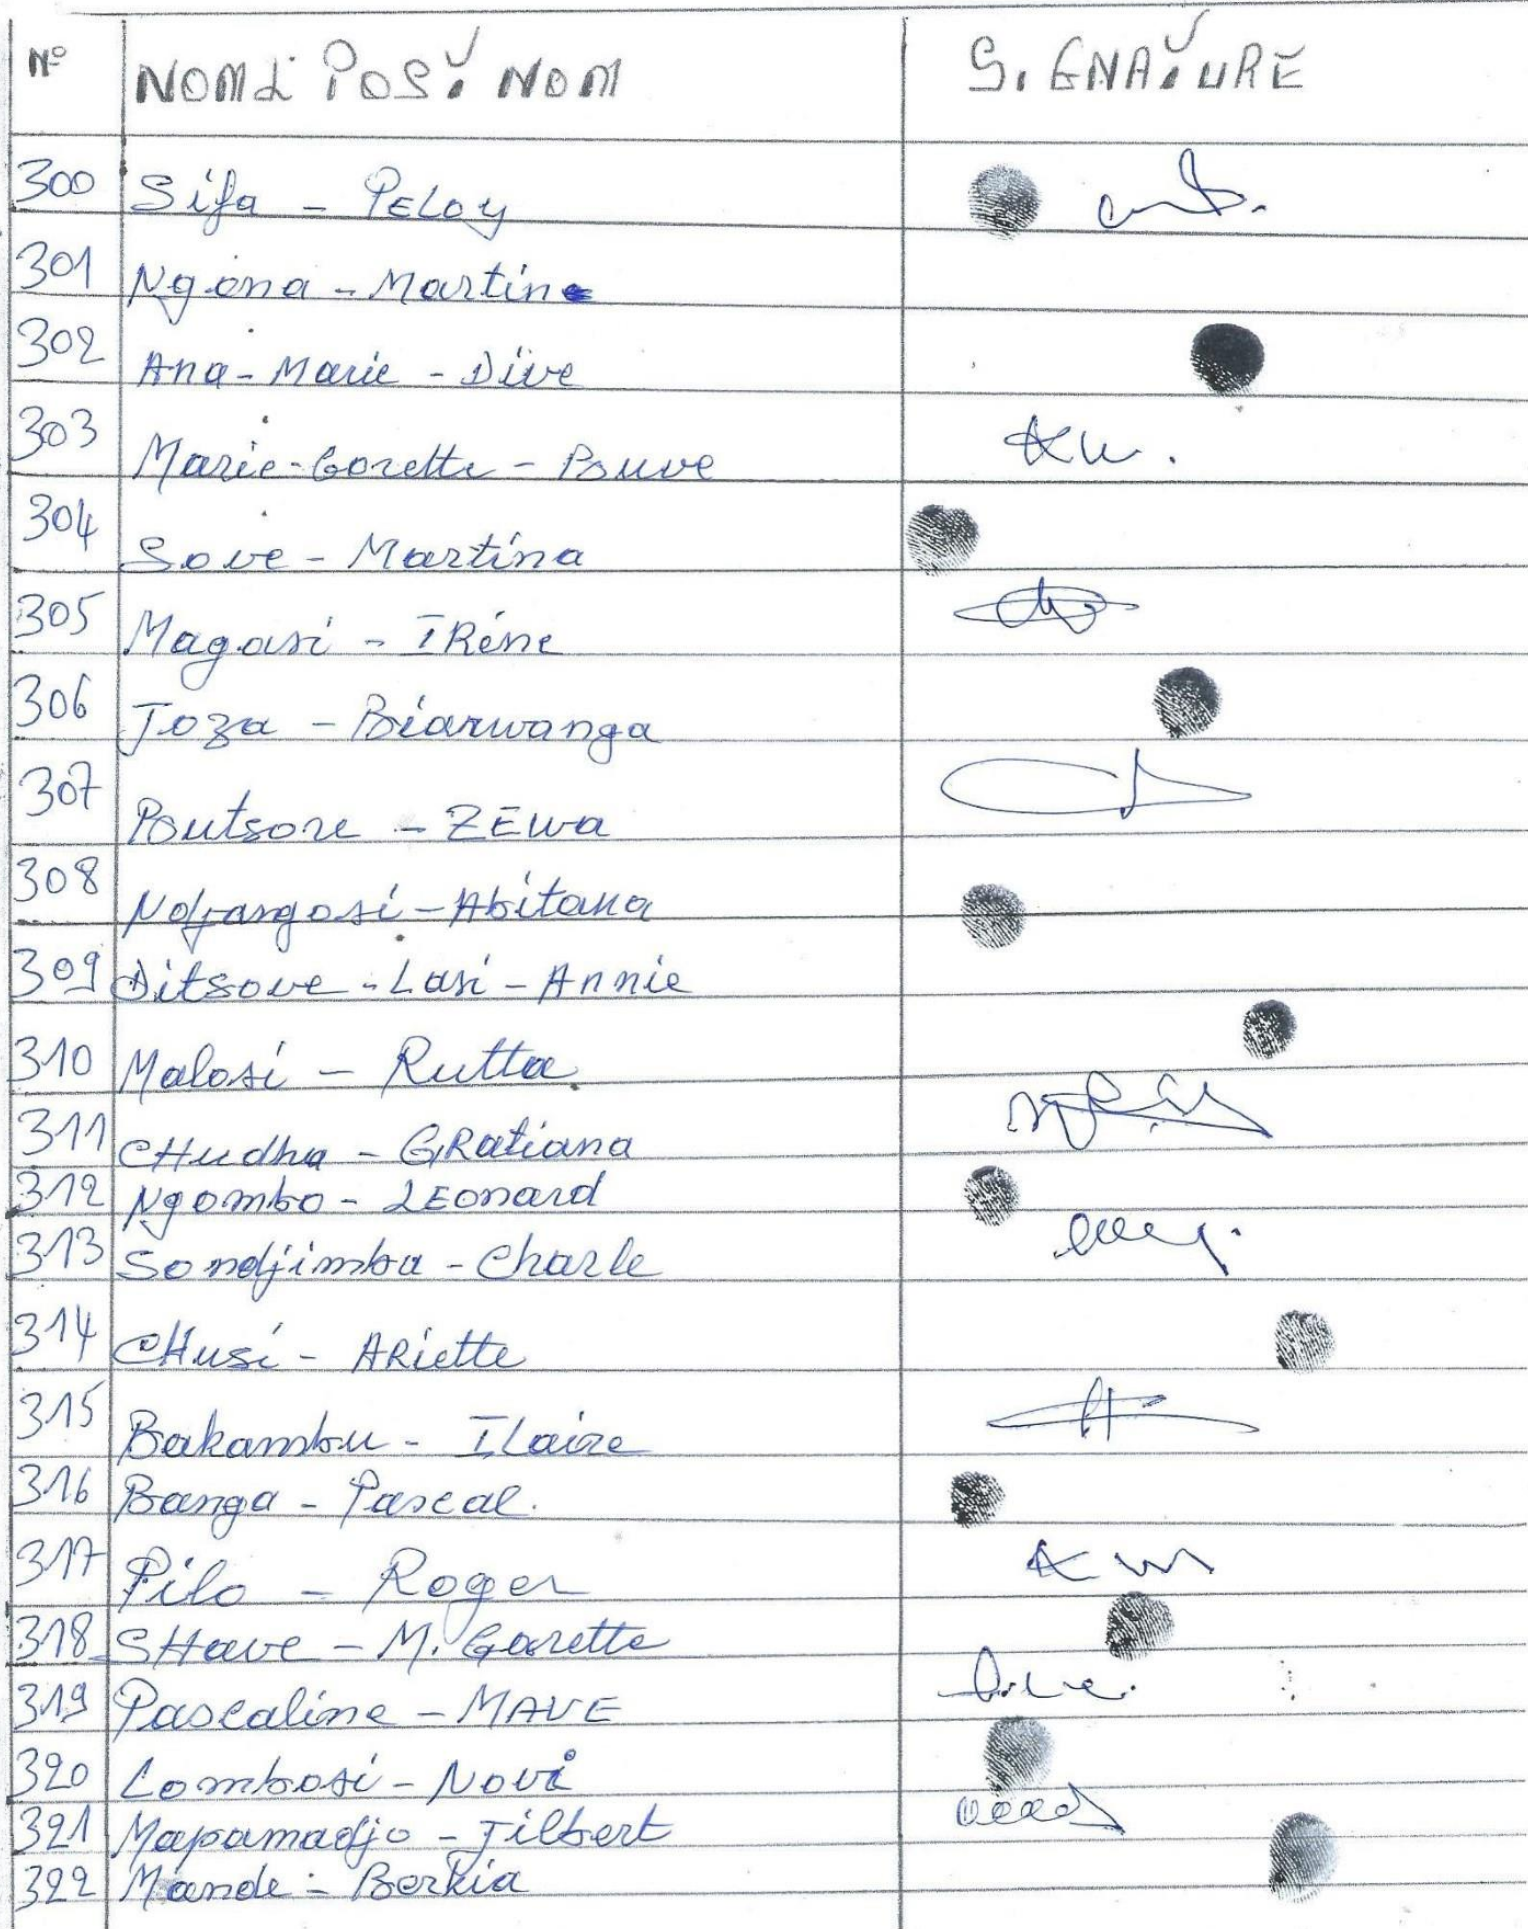 N° NOM & POST NOM SIGNATURE
300 Sifa - PELOY
301 Ngona - Martin
302 Ana-Marie - Dive
303 Marie-Gorette - Bouve
304 Sove - Martina
305 Magasi - IRéne
306 Joza - Biarwanga
307 Boutsore - ZEWA
308 Ndjangosi - Abitana
309 Ditsove - Lasi - Annie
310 Malosi - Rutta
311 CHudha - GRatiana
312 Ngombo - LEonard
313 Sondjimba - Charle
314 CHusi - ARiette
315 Bakambu - ILaire
316 Banga - Pascal.
317 Pilo - Roger
318 SHave - M. Gorette
319 Pascaline - MAVE
320 Lombosi - Novi
321 Mapamadjo - Jilbert
322 Mande - Borkia